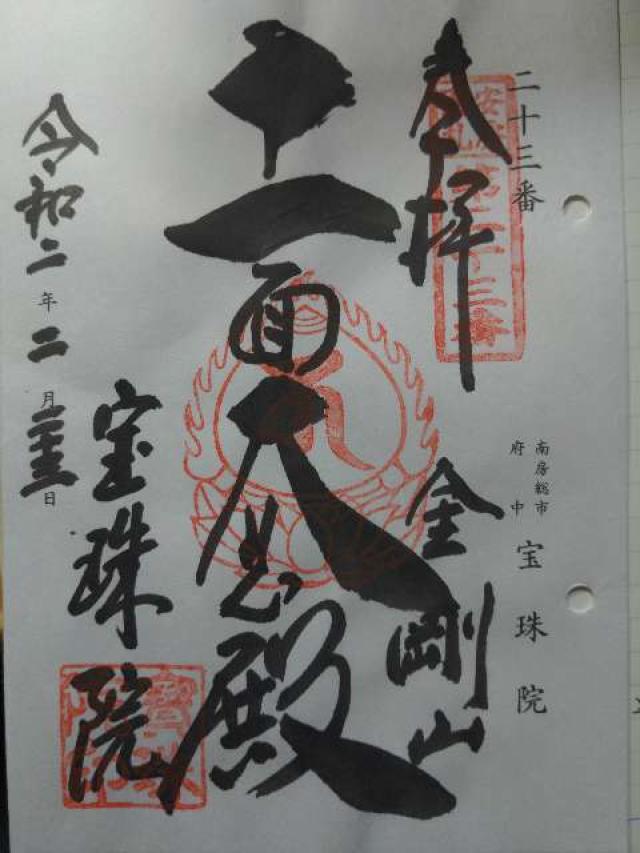 二十三番
奉拝
第二十三番
南房総市
府中
宝珠院
金剛山
十一面大悲殿
宝珠院
令和二年二月二十三日